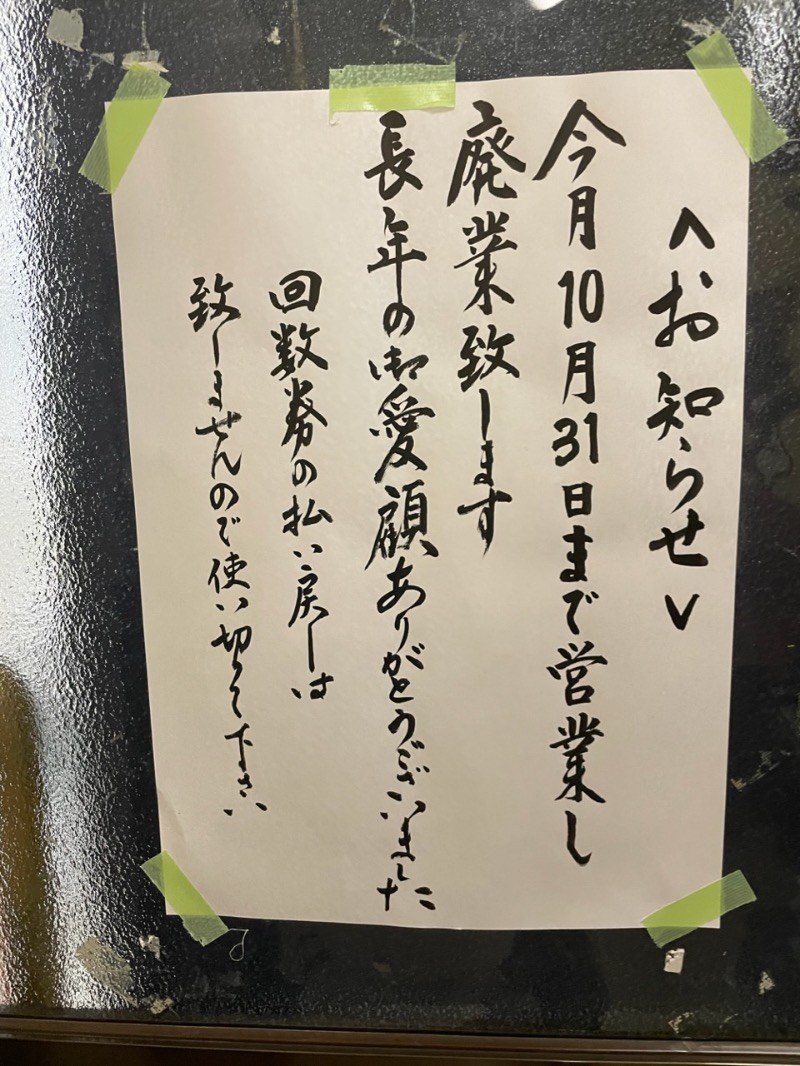 <お知らせ>
今月10月31日まで営業し
廃業致します
長年の御愛顧ありがとうございました
回数券の払い戻しは
致しませんので使い切って下さい